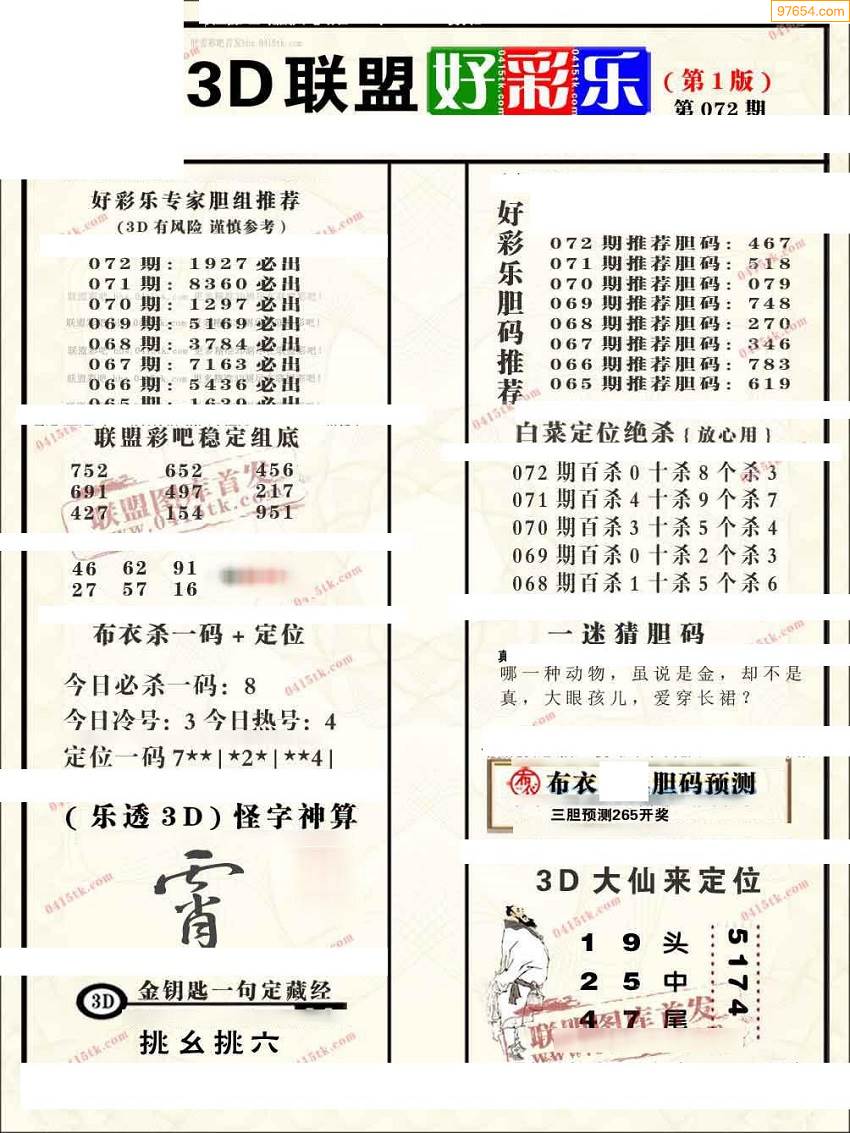 97654.com
3D联盟好彩乐
(第1版)
第 072 期
好彩乐专家胆组推荐
(3D 有风险 谨慎参考)
072 期: 1927 必出
071 期: 8360 必出
070 期: 1297 必出
069 期: 5169 必出
068 期: 3784 必出
067 期: 7163 必出
066 期: 5436 必出
065 期: 1639 必出
联盟彩吧稳定组底
752 652 456
691 497 217
427 154 951
46 62 91
27 57 16
布衣杀一码 + 定位
今日必杀一码: 8
今日冷号: 3 今日热号: 4
定位一码 7**|*2*|**4|
(乐透 3D) 怪字神算
霄
3D 金钥匙一句定藏经
挑幺挑六
好彩乐胆码推荐
072 期推荐胆码: 467
071 期推荐胆码: 518
070 期推荐胆码: 079
069 期推荐胆码: 748
068 期推荐胆码: 270
067 期推荐胆码: 346
066 期推荐胆码: 783
065 期推荐胆码: 619
白菜定位绝杀 {放心用}
072 期百杀 0 十杀 8 个杀 3
071 期百杀 4 十杀 9 个杀 7
070 期百杀 3 十杀 5 个杀 4
069 期百杀 0 十杀 2 个杀 3
068 期百杀 1 十杀 5 个杀 6
一迷猜胆码
哪一种动物，虽说是金，却不是
真，大眼孩儿，爱穿长裙？
布衣 胆码预测
三胆预测265开奖
3D 大仙来定位
1 9 头
2 5 中
4 7 尾
5174
联盟图库首发
www.0415tk.com
联盟图库首发
0415tk.com